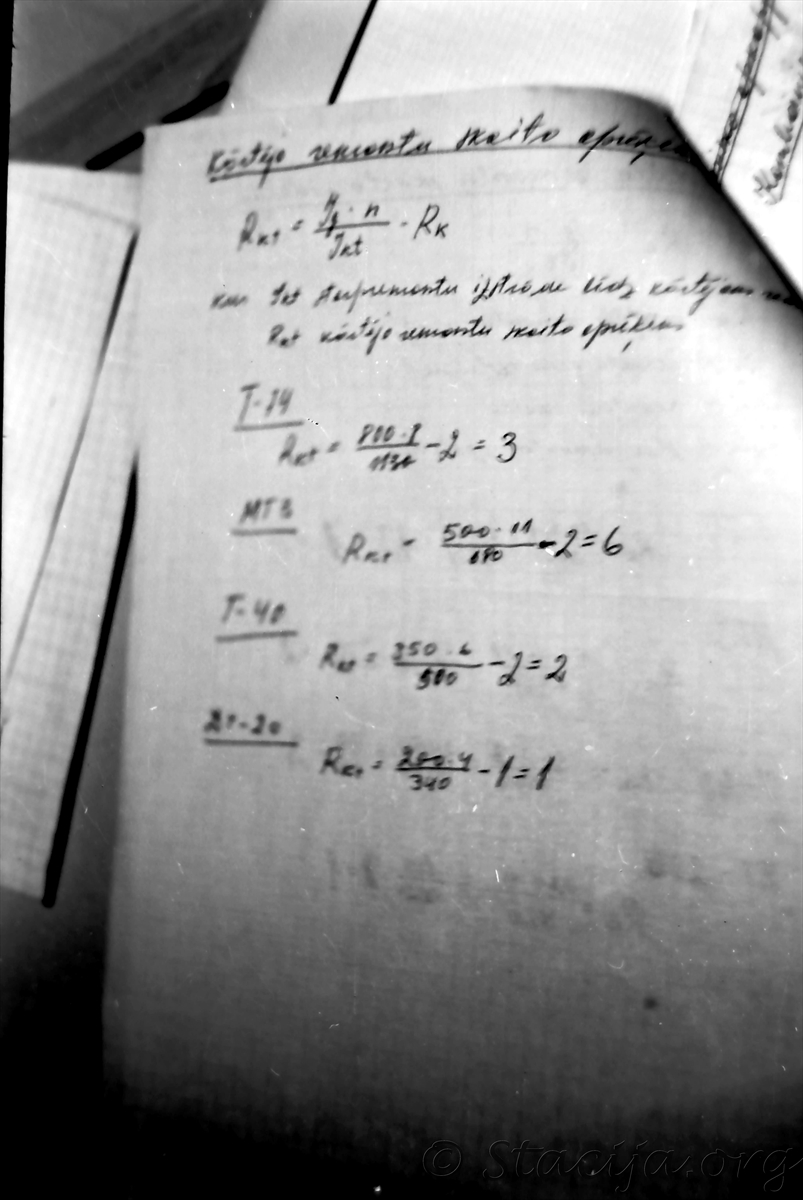 Kārtējo remontu skaita aprēķins
Rkt = Jg · n / Jkt - Rk
kur Jkt starpremontu izstrāde līdz kārtējam
Rkt kārtējo remontu skaita aprēķins
T-74
Rkt = 800 · 8 / 1130 - 2 = 3
MTZ
Rkt = 500 · 11 / 680 - 2 = 6
T-40
Rkt = 350 · 6 / 500 - 2 = 2
DT-20
Rkt = 200 · 4 / 340 - 1 = 1
© Stacija.org